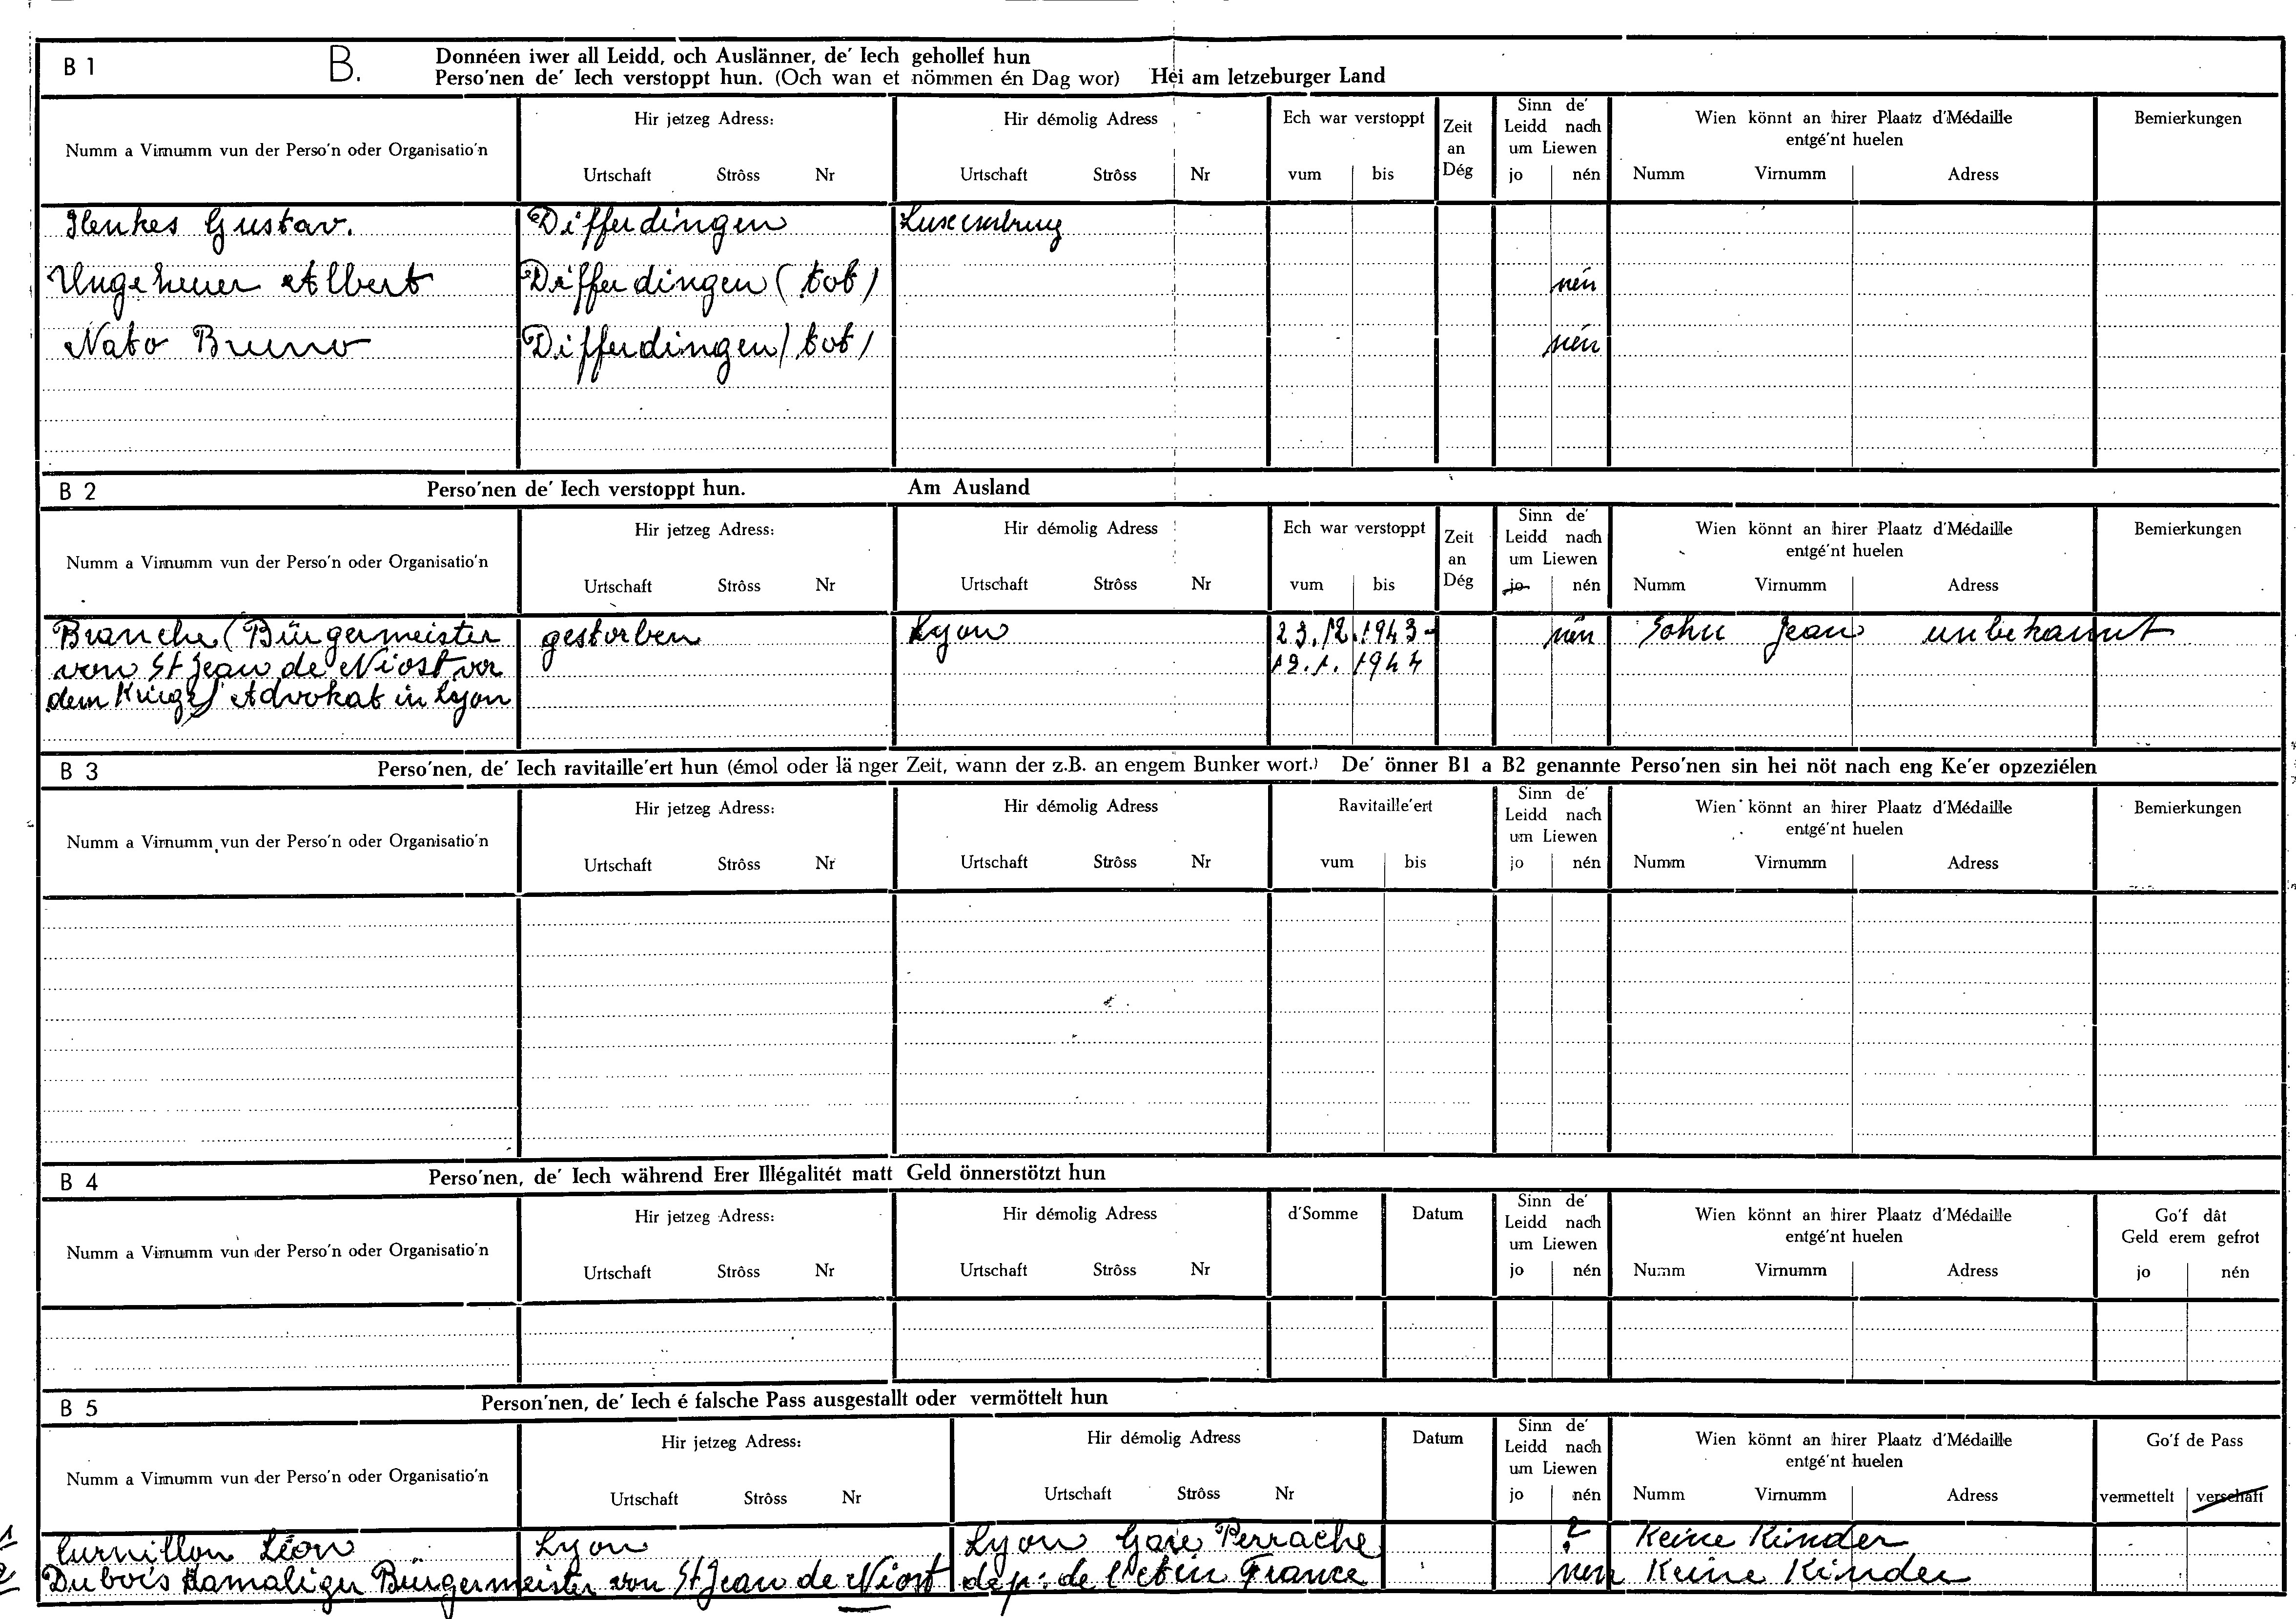 B 1 B. Donnéen iwer all Leidd, och Auslänner, de' Iech gehollef hun
Perso'nen de' Iech verstoppt hun. (Och wan et nömmen én Dag wor) Hei am letzeburger Land
Numm a Virnumm vun der Perso'n oder Organisatio'n
Hir jetzeg Adress:
Urtschaft Strôss Nr
Hir démolig Adress
Urtschaft Strôss Nr
Ech war verstoppt
vum bis
Zeit
an
Dég
Sinn de'
Leidd nach
um Liewen
jo nén
Wien könnt an hirer Plaatz d'Médaille
entgé'nt huelen
Numm Virnumm Adress
Bemierkungen
Henkes Gustav. Differdingen Luxemburg
Ungeheuer Albert Differdingen (tot) nén
Nato Bruno Differdingen (tot) nén
B 2 Perso'nen de' Iech verstoppt hun. Am Ausland
Numm a Virnumm vun der Perso'n oder Organisatio'n
Hir jetzeg Adress:
Urtschaft Strôss Nr
Hir démolig Adress
Urtschaft Strôss Nr
Ech war verstoppt
vum bis
Zeit
an
Dég
Sinn de'
Leidd nach
um Liewen
jo nén
Wien könnt an hirer Plaatz d'Médaille
entgé'nt huelen
Numm Virnumm Adress
Bemierkungen
Branche (Bürgermeister gestorben Lyon 23.12.1943- nén Sohn Jean unbekannt
von St Jean de Niost vor 12.1.1944
dem Kriege) Advokat in Lyon
B 3 Perso'nen, de' Iech ravitaille'ert hun (émol oder länger Zeit, wann der z.B. an engem Bunker wort.) De' önner B1 a B2 genannte Perso'nen sin hei nöt nach eng Ke'er opzeziélen
Numm a Virnumm vun der Perso'n oder Organisatio'n
Hir jetzeg Adress:
Urtschaft Strôss Nr
Hir démolig Adress
Urtschaft Strôss Nr
Ravitaille'ert
vum bis
Sinn de'
Leidd nach
um Liewen
jo nén
Wien könnt an hirer Plaatz d'Médaille
entgé'nt huelen
Numm Virnumm Adress
Bemierkungen
B 4 Perso'nen, de' Iech während Erer Illégalitét matt Geld önnerstötzt hun
Numm a Virnumm vun der Perso'n oder Organisatio'n
Hir jetzeg Adress:
Urtschaft Strôss Nr
Hir démolig Adress
Urtschaft Strôss Nr
d'Somme
Datum
Sinn de'
Leidd nach
um Liewen
jo nén
Wien könnt an hirer Plaatz d'Médaille
entgé'nt huelen
Numm Virnumm Adress
Go'f dât
Geld erem gefrot
jo nén
B 5 Person'nen, de' Iech é falsche Pass ausgestallt oder vermöttelt hun
Numm a Virnumm vun der Perso'n oder Organisatio'n
Hir jetzeg Adress:
Urtschaft Strôss Nr
Hir démolig Adress
Urtschaft Strôss Nr
Datum
Sinn de'
Leidd nach
um Liewen
jo nén
Wien könnt an hirer Plaatz d'Médaille
entgé'nt huelen
Numm Virnumm Adress
Go'f de Pass
vermettelt verschaft
1 Curnillon Léon Lyon Lyon Gare Perrache ? Keine Kinder
2 Dubois damaliger Bürgermeister von St Jean de Niost dép: de l'Ain France nén Keine Kinder